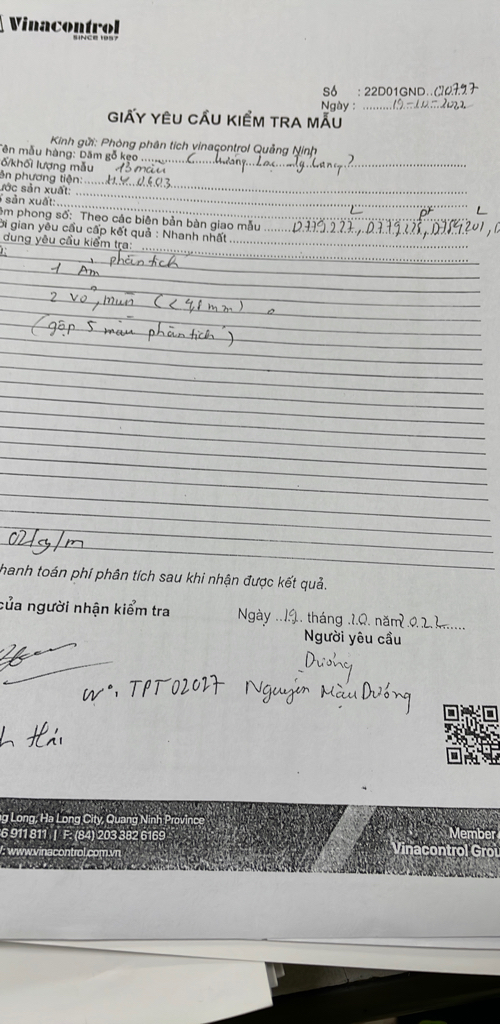 Vinacontrol
SINCE 1957
Số : 22D01GND..010727
Ngày : .........19-10-2022
GIẤY YÊU CẦU KIỂM TRA MẪU
Kính gửi: Phòng phân tích vinacontrol Quảng Ninh
ên mẫu hàng: Dăm gỗ keo
ố/khối lượng mẫu 13 mẫu
ên phương tiện: H.Y 0603
ước sản xuất:
sản xuất:
êm phong số: Theo các biên bản bàn giao mẫu
ời gian yêu cầu cấp kết quả : Nhanh nhất
dung yêu cầu kiểm tra:
phân tích
1 Ẩm
2 vỏ, mùn
(gộp 5 mẫu phân tích)
hanh toán phí phân tích sau khi nhận được kết quả.
của người nhận kiểm tra
Ngày ..19.. tháng .10. năm2.0.2.2......
Người yêu cầu
Dưỡng
TPT 02027 Nguyễn Mậu Dưỡng
h Hải
g Long, Ha Long City, Quang Ninh Province
6 911 811 | F: (84) 203 382 6169
: www.vinacontrol.com.vn
Member
Vinacontrol Grou